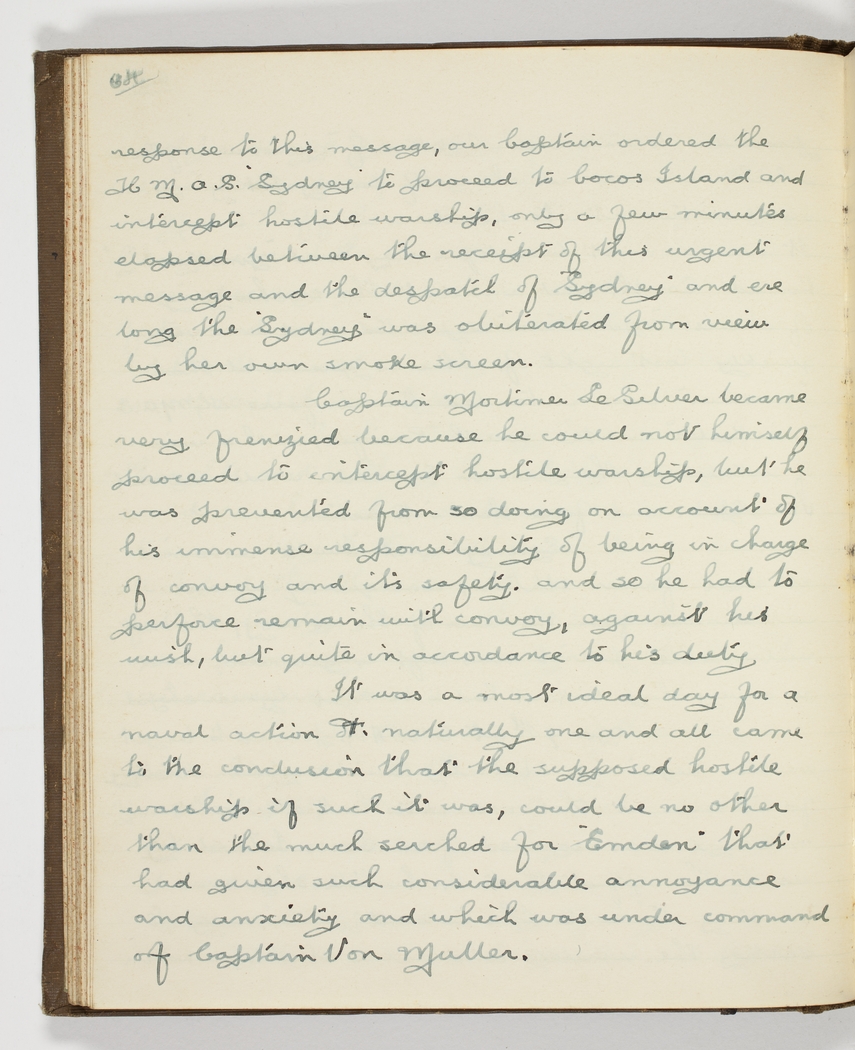 64
response to this message, our Captain ordered the
H M. A. S. "Sydney" to proceed to Cocos Island and
intercept hostile warship, only a few minutes
elapsed between the receipt of this urgent
message and the despatch of "Sydney" and ere
long the "Sydney" was obliterated from view
by her own smoke screen.
Captain Mortimer Le Silver became
very frenzied because he could not himself
proceed to intercept hostile warship, but he
was prevented from so doing on account of
his immense responsibility of being in charge
of convoy and its safety. and so he had to
perforce remain with convoy, against his
wish, but quite in accordance to his duty
It was a most ideal day for a
naval action It. naturally one and all came
to the conclusion that the supposed hostile
warship if such it was, could be no other
than the much serched for "Emden" that
had given such considerable annoyance
and anxiety and which was under command
of Captain Von Muller.